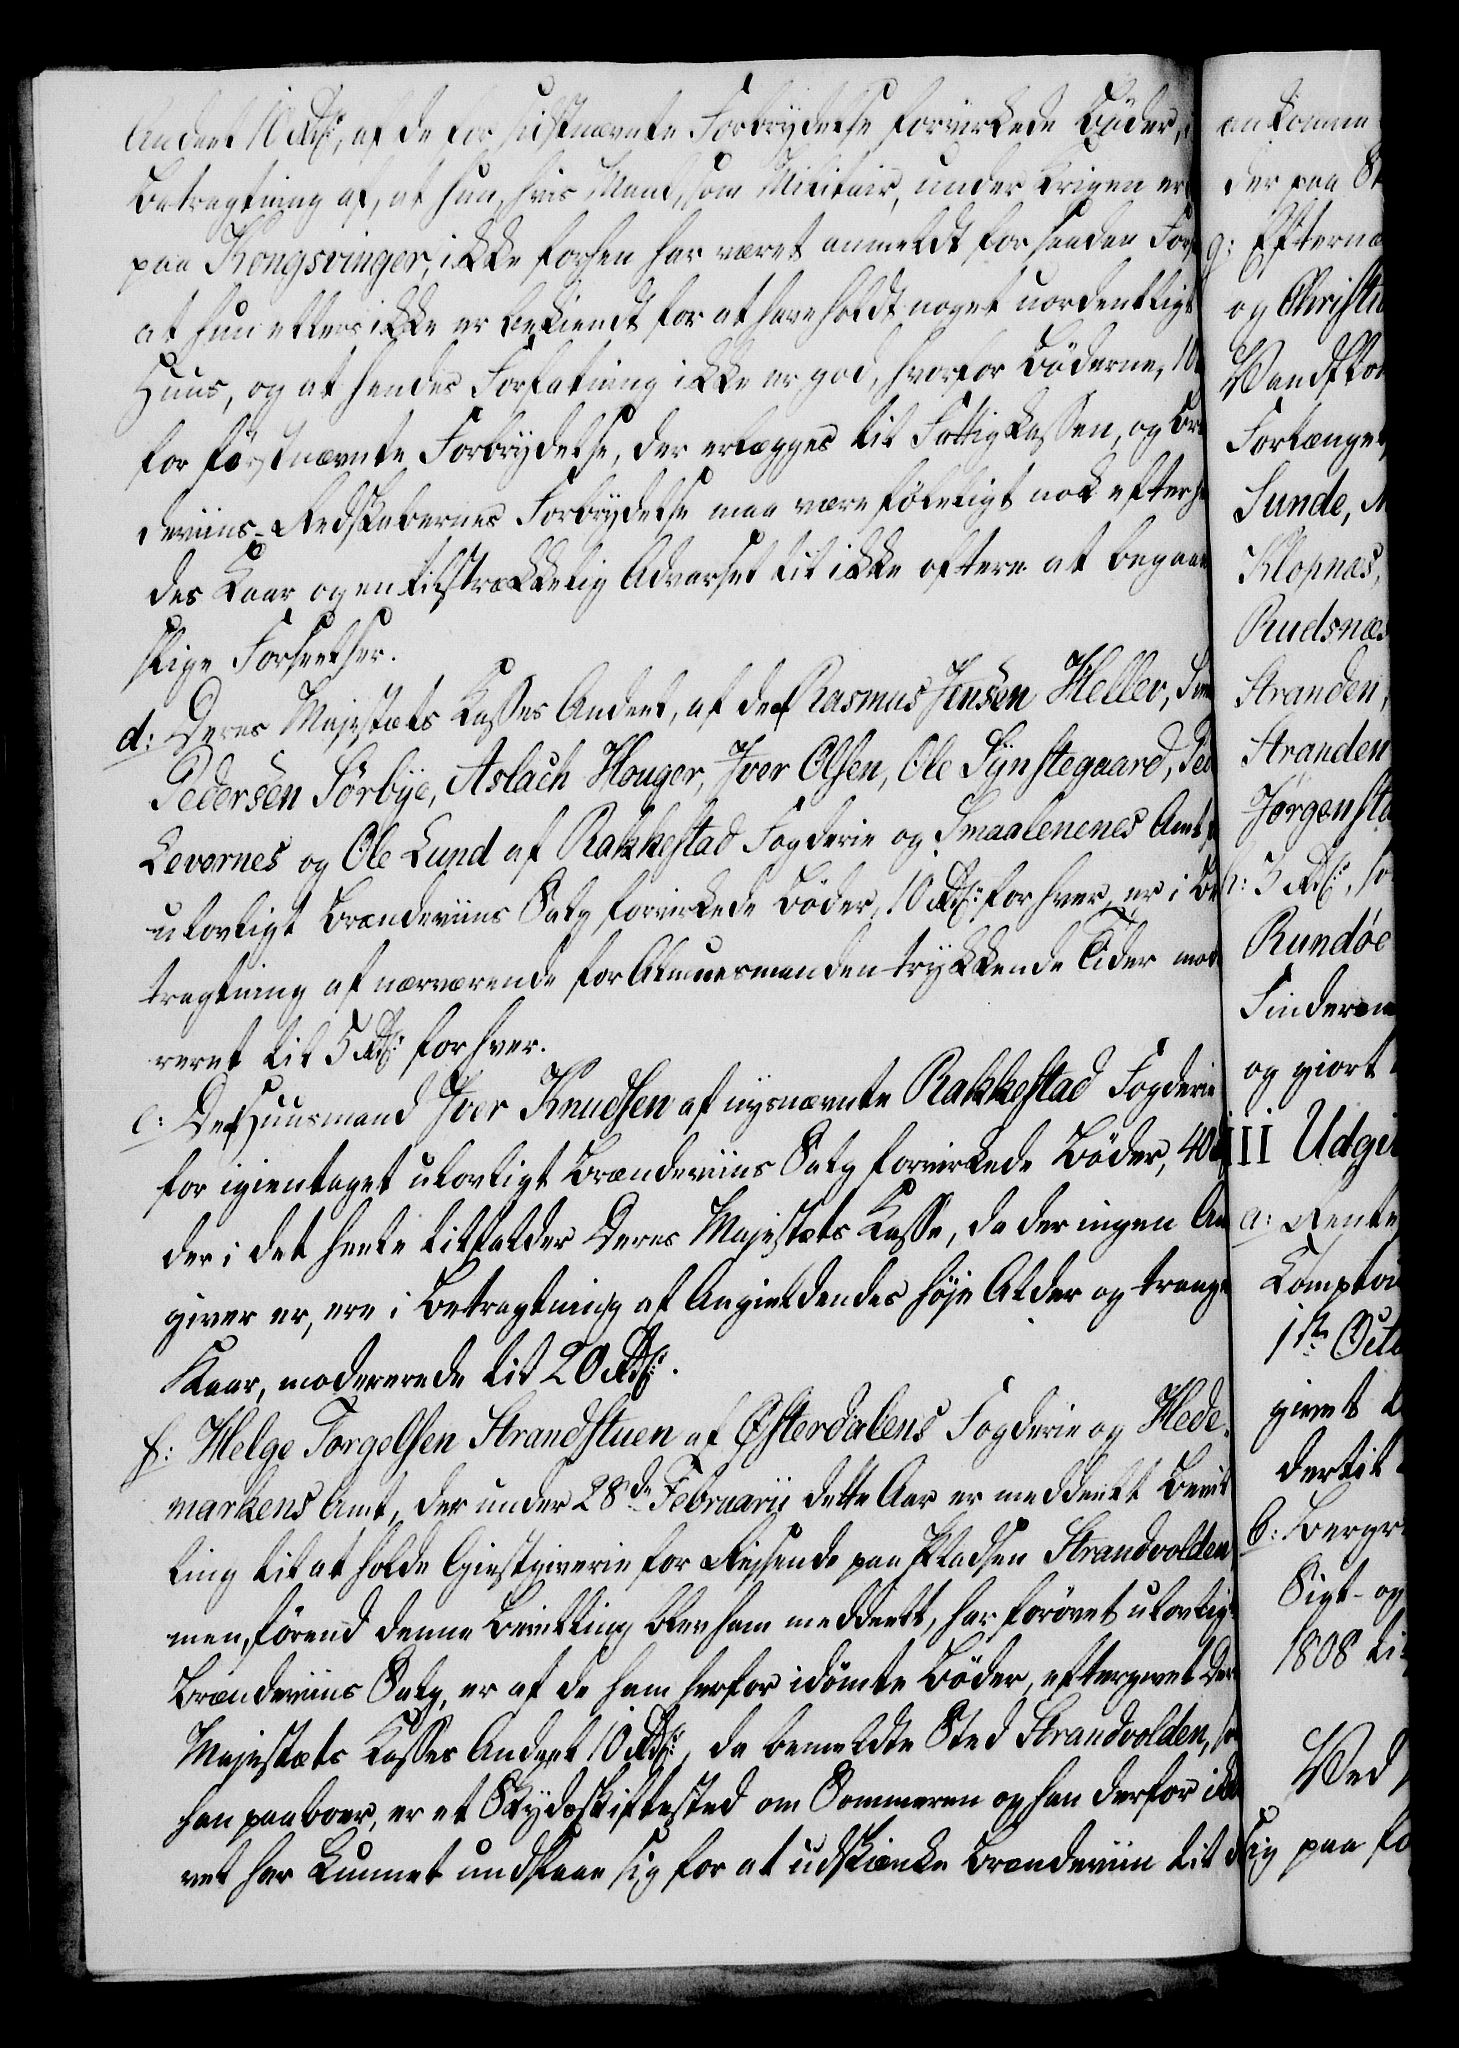 Andeel 10 Rdlr, af de for sidstnævnte Forbrydelse forvirkede Böder, i
Betragtning af, at hun, hvis Mand, som Militair, under Krigen er
paa Kongsvinger, ikke forhen har været anmeldt for saadan Fors
at hun ellers ikke er bekiendt for at have holdt noget uordentligt
Huus, og at hendes Forfatning ikke er god, hvorfor Böderne, 10
for förstnævnte Forbrydelse, der erlægges til Fattigkassen, og Bræn
deviins-Redskabernes Forbrydelse maa være föleligt nok efter hen
des Kaar og en tilstrækkelig Advarsel til ikke oftere at begaae
slige Forseelser.
d: Deres Majestæts Kasses Andeel, af de af Rasmus Jensen Heller,
Pedersen Sörbye, Aslach Houger, Iver Olsen, Ole Synstegaard, Ped
Levernes og Ole Lund af Rakkestad Fogderie og Smaalenenes Amt f
ulovligt Brændeviins Salg, forvirkede Böder, 10 Rdlr: for hver, er i Be
tragtning af nærværende for Almuesmanden trykkende Tider mode
reret til 5 Rdlr: for hver.
e: De af Huusmand Iver Knudsen af nysnævnte Rakkestad Fogderie
for igientaget ulovligt Brændeviins Salg forvirkede Böder, 40 R
der i det heele tilfalder Deres Majestæts Kasse, da der ingen An
giver er, ere i Betragtning af Angieldendes höje Alder og trange
Kaar, modererede til 20 Rdlr:.
f: Helge Torgelsen Strandstuen af Østerdalens Fogderie og Hede-
markens Amt, der under 28de Februarij dette Aar er meddeelt Bevil
ling til at holde Giestgiverie for Rejsende paa Pladsen Strandvolden,
men, förend denne Bevilling blev ham meddeelt, har forövet ulovligt
Brændeviins Salg, er af de ham herfor idömte Böder, eftergivet Der
Majestæts Kasses Andeel 10 Rdlr:, da bemeldte Sted Strandvolden, so
han paaboer, er et Skydsskiftested om Sommeren og han derfor ikke
vel har kunnet undslaae sig for at udskiænke Brændeviin til d
ankomme
der paa St
g: Efterna
og Christia
Vandflod
Forlænget
Sunde, M
Klopnæs,
Rudsnæs
Stranden,
Stranden
Jørgensta
h: 3 Rdlr:, so
Rundöe
Finderen
og giort
III Udgi
a: Rente
Comptoi
1ste Octo
givet
dertil
b: Bergr
Sigt- og
1808 til
Ved
sig paa fo